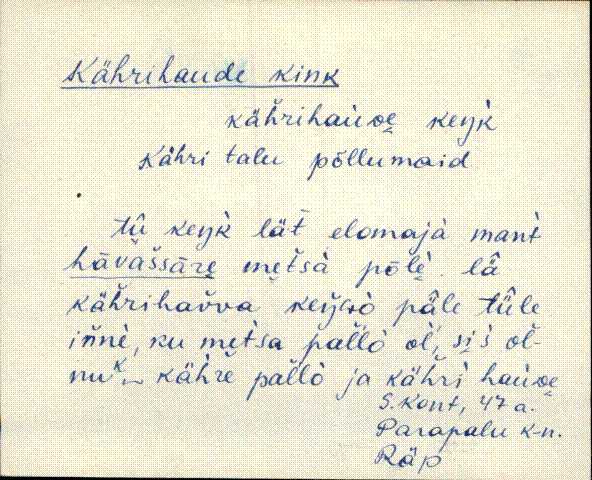 Kährihaude kink
kährihaùᴅe̬ keŋk̀
Kähri talu põllumaid
tû keŋk̀ lät elomaja mant̀
hāväššāre̬ met̀sà pōlè lâ
kährihavva keŋ̀ᴋò päle tûle
iñnè, ku met̀sa pal̀lò ol̀, sis ol̀-
nuᴷ kähre pal̀lò ja kähri haùᴅe̬
S. Kont, 47 a.
Parapalu k-n.
Räp